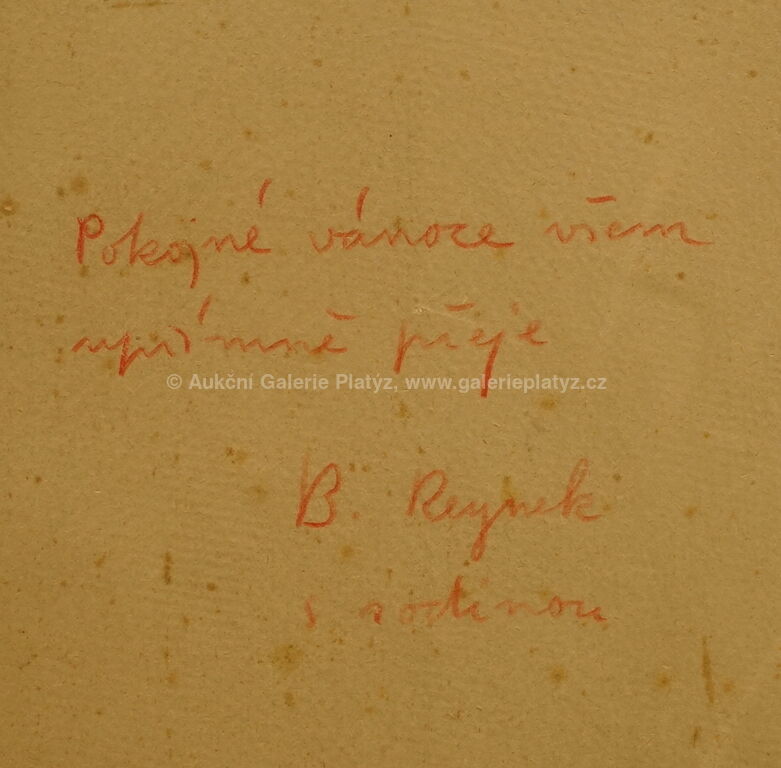 Pokojné vánoce všem
upřímně přeje
© Aukční Galerie Platýz, www.galerieplatyz.cz
B. Reynek
s rodinou